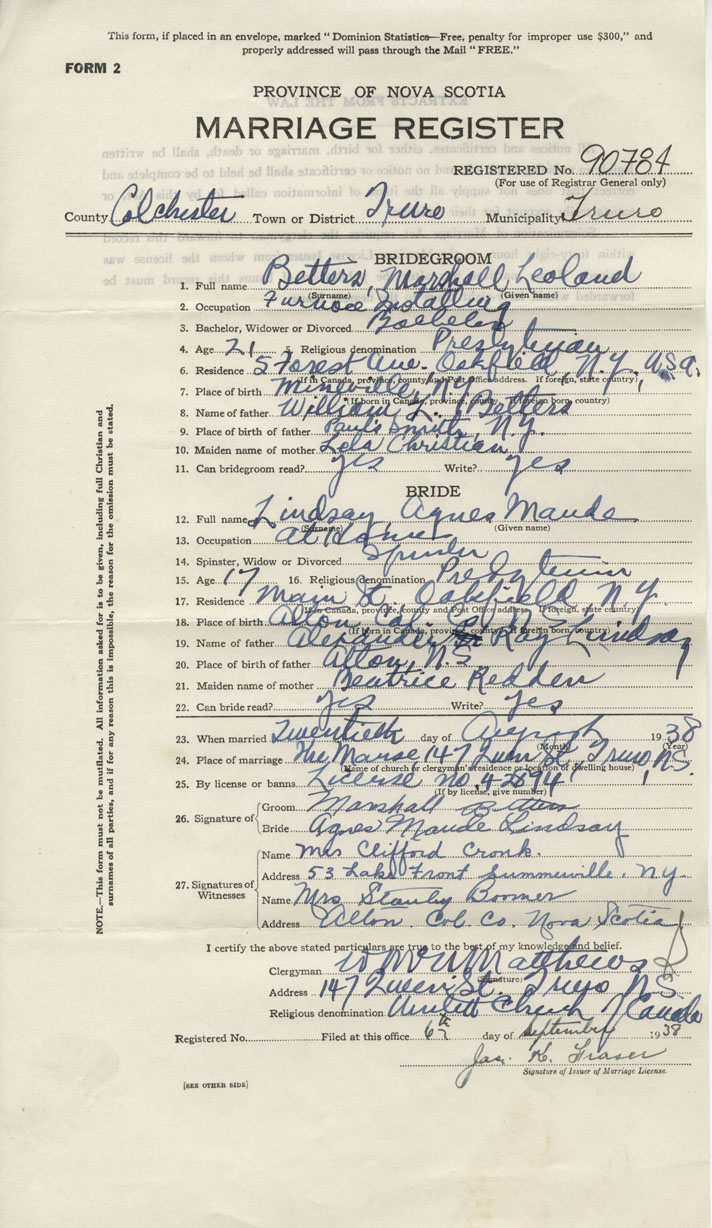 This form, if placed in an envelope, marked "Dominion Statistics—Free, penalty for improper use $300," and
properly addressed will pass through the Mail "FREE."
FORM 2
PROVINCE OF NOVA SCOTIA
MARRIAGE REGISTER
REGISTERED No. 90784
(For use of Registrar General only)
County Colchester Town or District Truro Municipality Truro
BRIDEGROOM
1. Full name Betters, Marshall Leoland
(Surname) (Given name)
2. Occupation Furnace Installing
3. Bachelor, Widower or Divorced Bachelor
4. Age 21 5. Religious denomination Presbyterian
6. Residence 5 Forest Ave. Oakfield, N.Y., U.S.A.
(If in Canada, province, county and Post Office address. If foreign, state country)
7. Place of birth Mineville, N.Y.
(If born in Canada, province, county. If foreign born, country)
8. Name of father William L. Betters
9. Place of birth of father Paul Smith, N.Y.
10. Maiden name of mother Lela Christian
11. Can bridegroom read? yes Write? yes
BRIDE
12. Full name Lindsay Agnes Maude
(Surname) (Given name)
13. Occupation at Home
14. Spinster, Widow or Divorced Spinster
15. Age 17 16. Religious denomination Presbyterian
17. Residence Main St. Oakfield N.Y.
(If in Canada, province, county and Post Office address. If foreign, state country)
18. Place of birth Col.
(If born in Canada, province, county. If foreign born, country)
19. Name of father Alexander Ray Lindsay
20. Place of birth of father N.S.
21. Maiden name of mother Beatrice Redden
22. Can bride read? yes Write? yes
23. When married Twentieth day of August 1938
(Month) (Year)
24. Place of marriage The Manse, 147 Queen St., Truro, N.S.
(Name of church or clergyman's residence or location of dwelling house)
25. By license or banns License no. 42894
(If by license, give number)
26. Signature of Groom Marshall Betters
Bride Agnes Maude Lindsay
27. Signatures of Witnesses
Name Mrs Clifford Cronk.
Address 53 Lake Front Summerville. N.Y.
Name Mrs Stanley Boomer
Address Col. Co. Nova Scotia
I certify the above stated particulars are true to the best of my knowledge and belief.
Clergyman Matthews
(Signature)
Address 147 Queen St. Truro N.S.
Religious denomination United Church / Canada
Registered No. Filed at this office 6th day of September 1938
Jas. K. Fraser
Signature of Issuer of Marriage License.
[SEE OTHER SIDE]
NOTE.—This form must not be mutilated. All information asked for is to be given, including full Christian and
surnames of all parties, and if for any reason this is impossible, the reason for the omission must be stated.